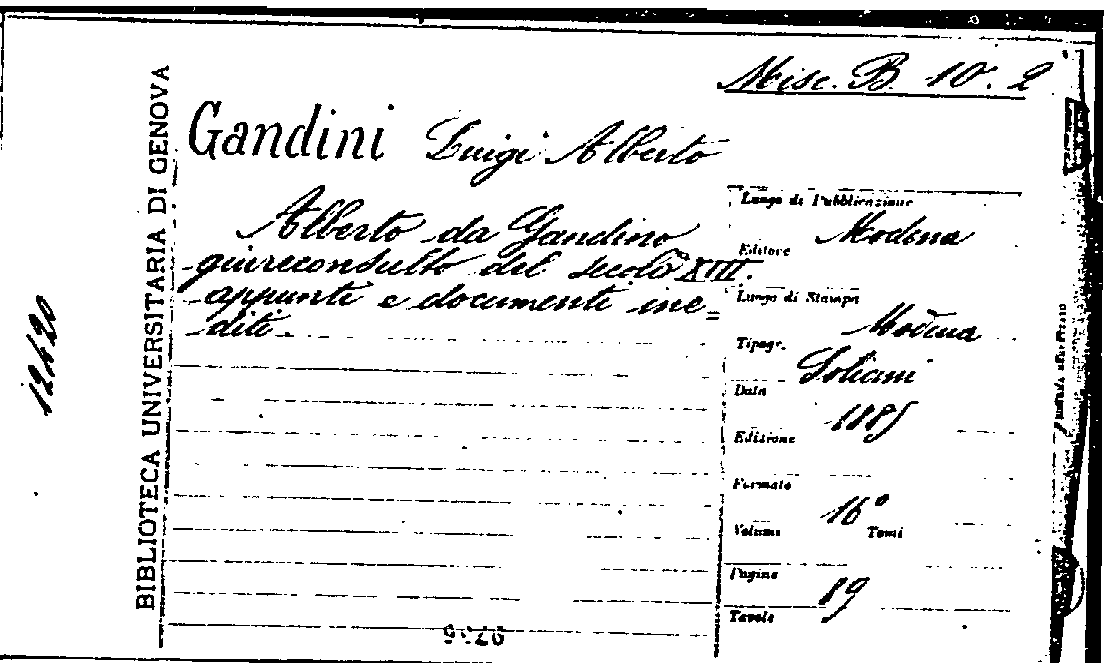 Misc. B. 10. 2
Gandini Luigi Alberto
BIBLIOTECA UNIVERSITARIA DI GENOVA
Alberto da Gandino
giureconsulto del secolo XIII.
appunti e documenti ine=
diti.
Luogo di Pubblicazione
Modena
Editore
Luogo di Stampa
Modena
Tipogr.
Soliani
Data
1885
Edizione
Formato
16°
Volumi Tomi
Pagine
19
Tavole